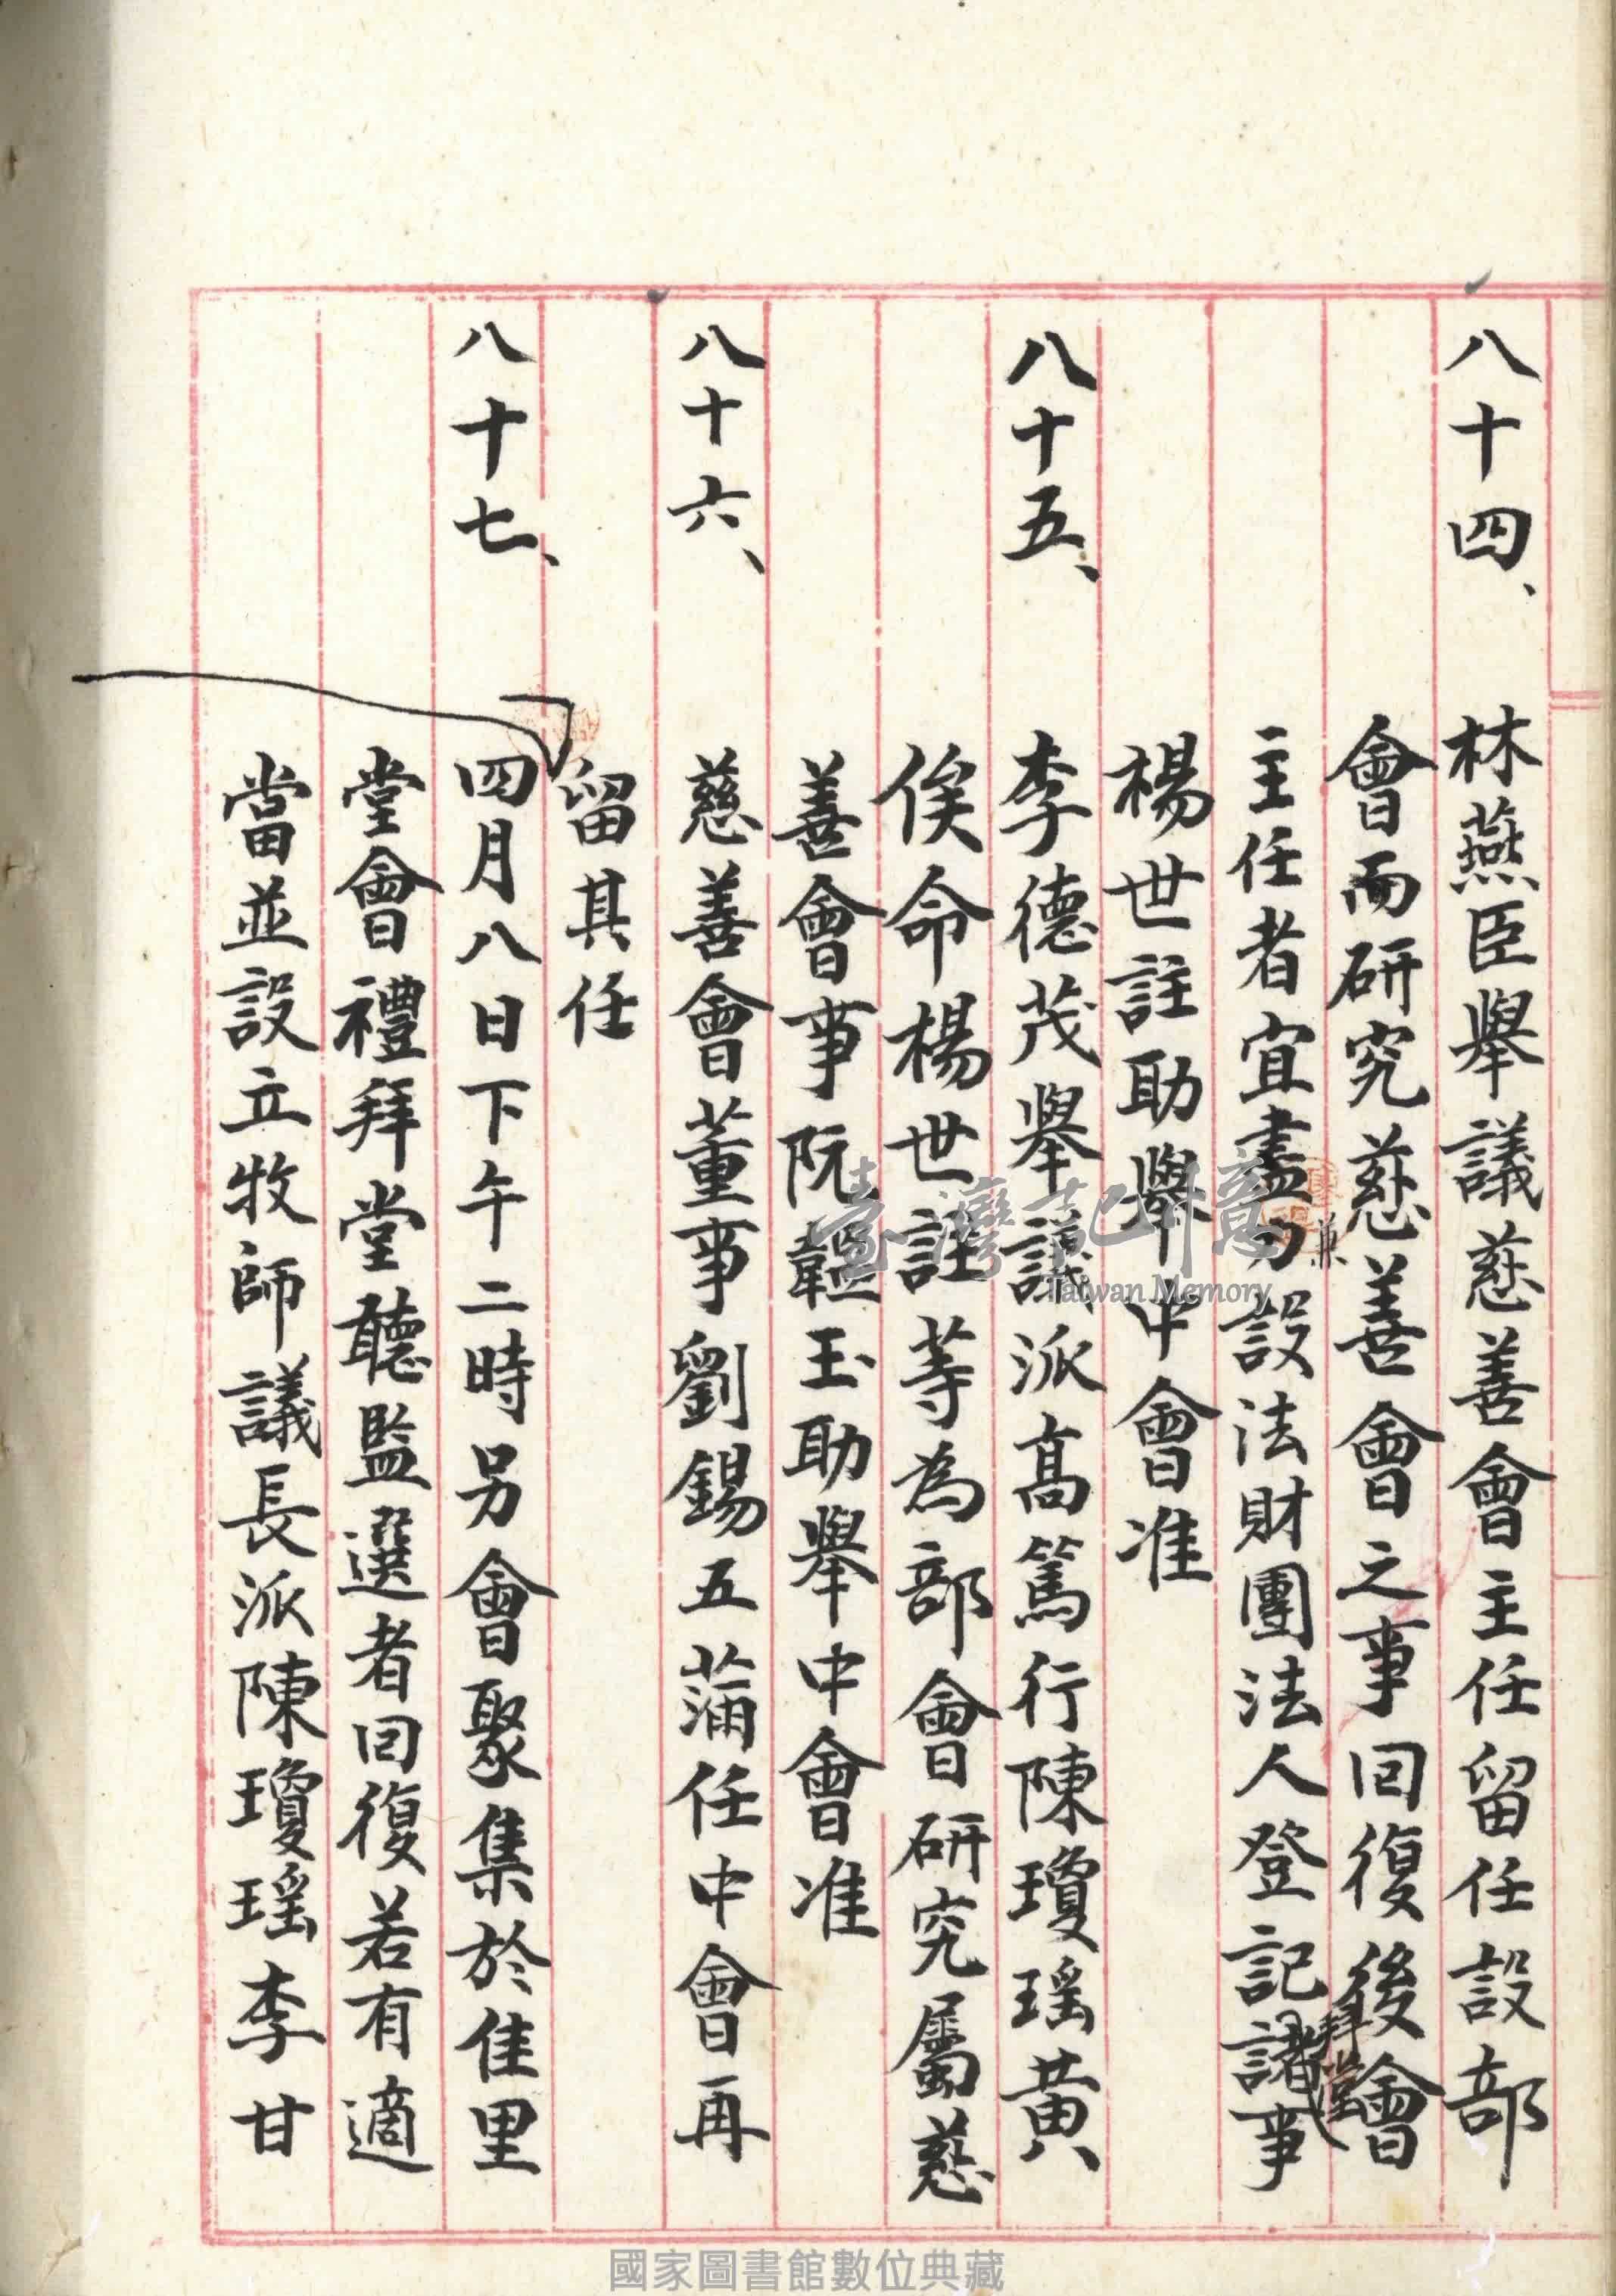 八十四、林燕臣舉議慈善會主任留任設部
會而研究慈善會之事回復後會
主任者宜盡力設法財團法人登記諸事
楊世註助舉中會准
八十五、李德茂舉議派高篤行陳瓊瑤黃
俟命楊世註等為部會研究屬慈
善會事阮韞玉助舉中會准
八十六、慈善會董事劉錫五蒲任中會再
留其任
八十七、四月八日下午二時另會聚集於佳里
堂會禮拜堂聽監選者回復若有適
當並設立牧師議長派陳瓊瑤李甘
臺灣記憶
Taiwan Memory
國家圖書館數位典藏